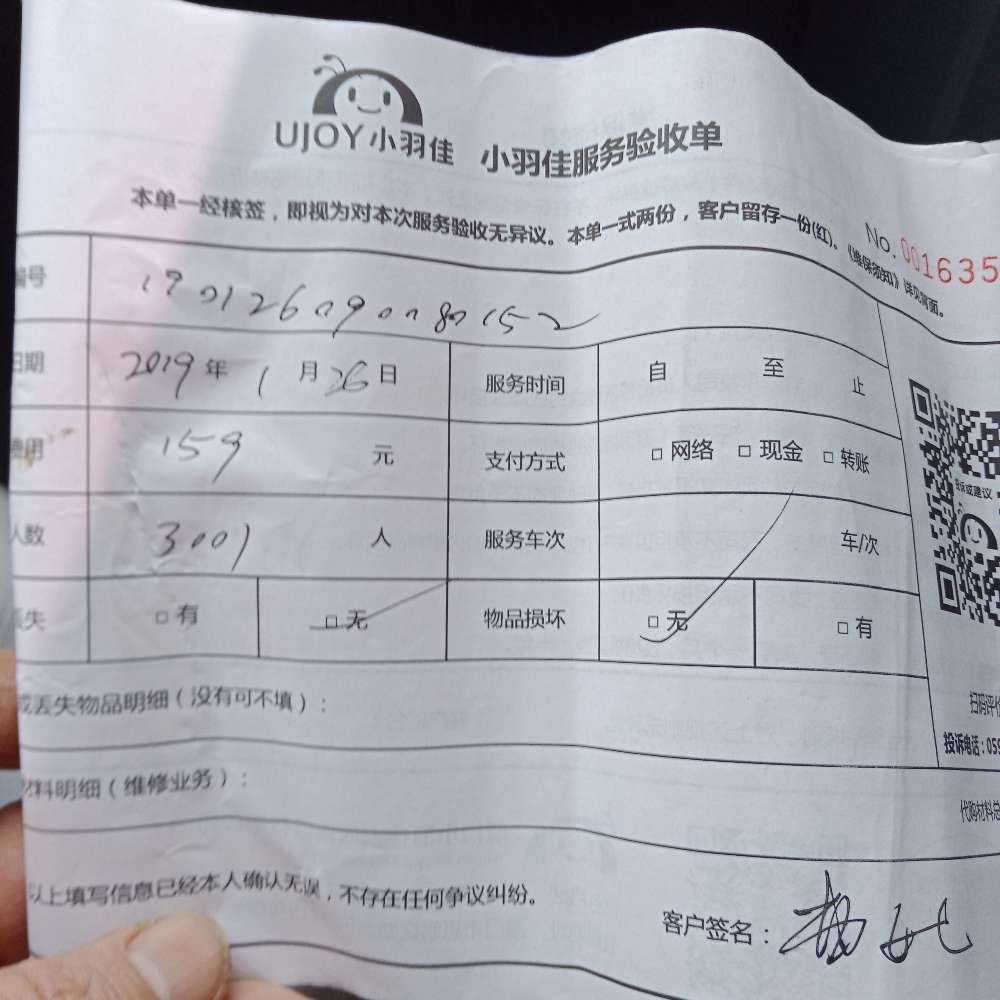 UJOY小羽佳 小羽佳服务验收单
本单一经核签，即视为对本次服务验收无异议。本单一式两份，客户留存一份(红)。《维保须知》详见背面。
No.001635
编号
日期 2019年 1月26日 服务时间 自 至 止
费用 159 元 支付方式 □ 网络 □ 现金 □ 转账
人数 3001 人 服务车次 车/次
丢失 □ 有 □ 无 物品损坏 □ 无 □ 有
投诉或建议
扫码评价
投诉电话：059
丢失物品明细（没有可不填）：
材料明细（维修业务）：
代购材料总
以上填写信息已经本人确认无误，不存在任何争议纠纷。
客户签名：